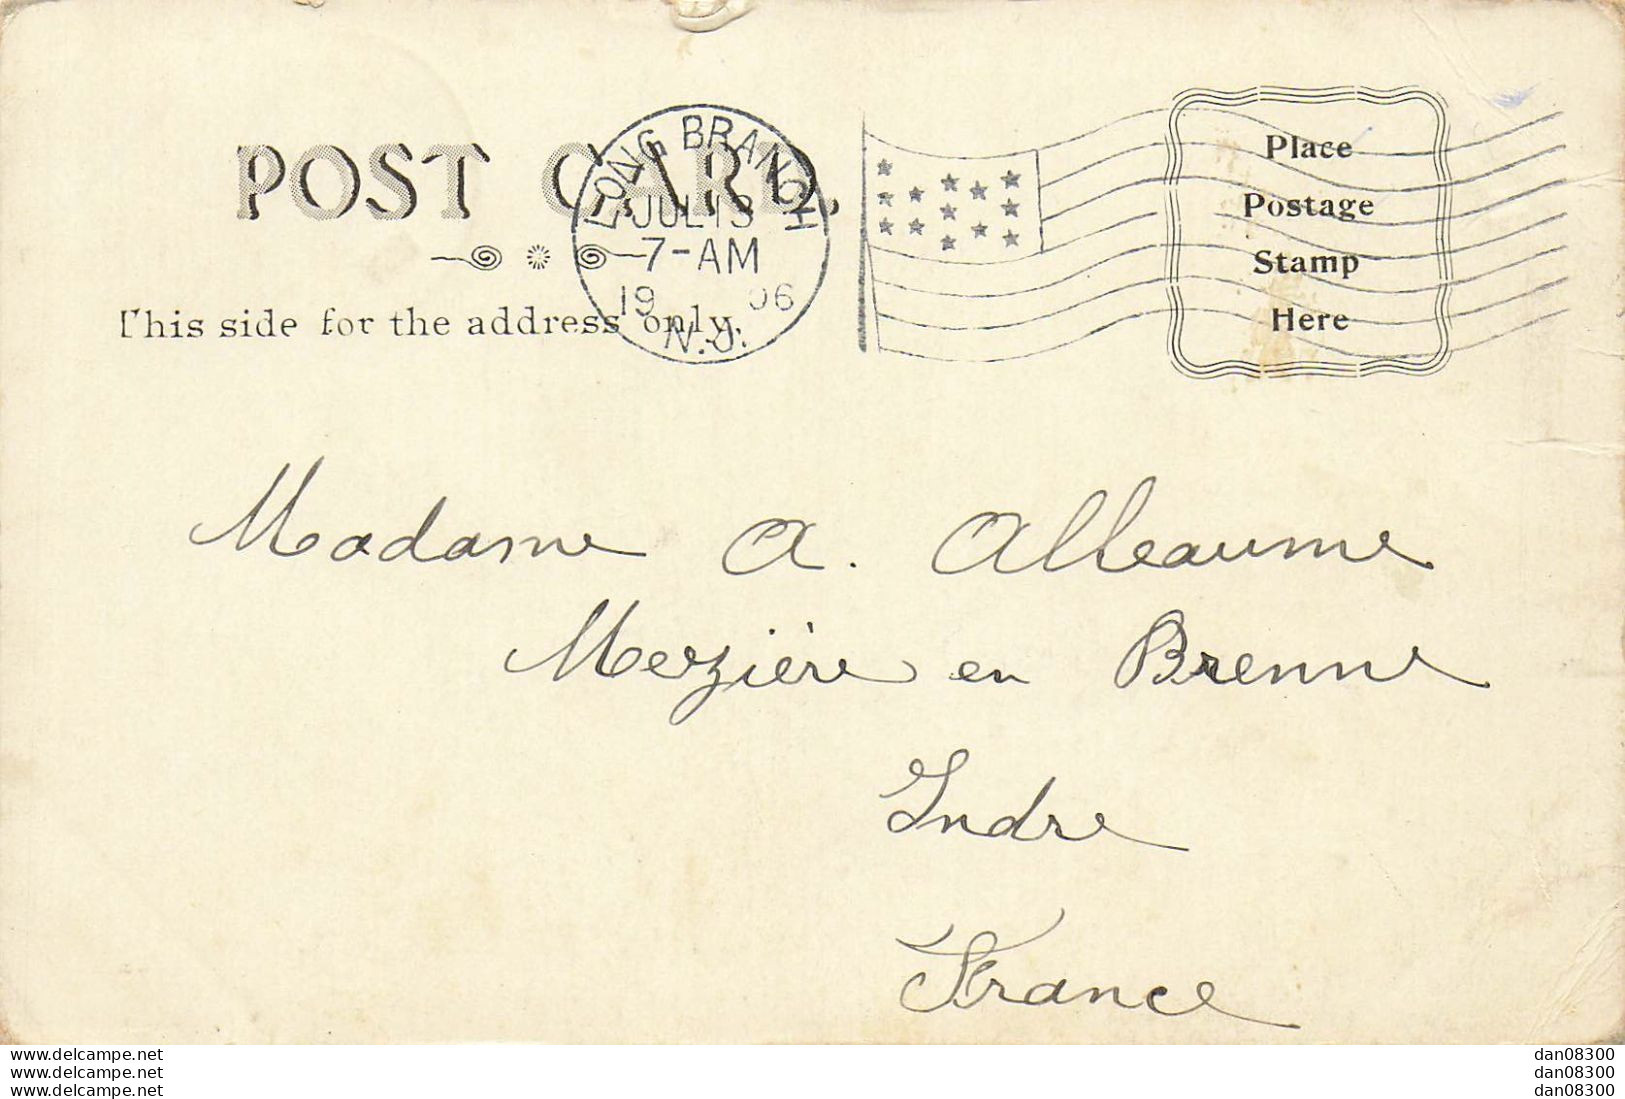 POST CARD.
LONG BRANCH
JUL 13
7-AM
1906
N.J.
This side for the address only.
Place
Postage
Stamp
Here
Madame A. Alleaume
Mezière en Brenne
Indre
France
www.delcampe.net
www.delcampe.net
www.delcampe.net
dan08300
dan08300
dan08300